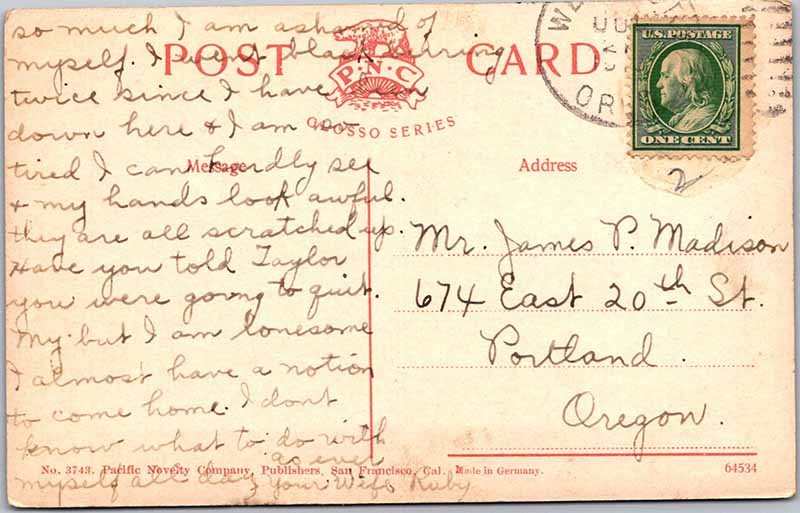 so much I am ashamed of
myself. I went blackberrying
twice since I have been
down here & I am so
tired I can hardly see
& my hands look awful.
they are all scratched up.
Have you told Taylor
you were going to quit.
My but I am lonesome
I almost have a notion
to come home. I dont
know what to do with
myself all day, as ever
Your Wife Ruby
POST CARD
P.N.C
OSSO SERIES
Message
Address
OR
U.S. POSTAGE
ONE CENT
2
Mr. James P. Madison
674 East 20th St.
Portland.
Oregon.
No. 3743. Pacific Novelty Company, Publishers, San Francisco, Cal. Made in Germany.
64534